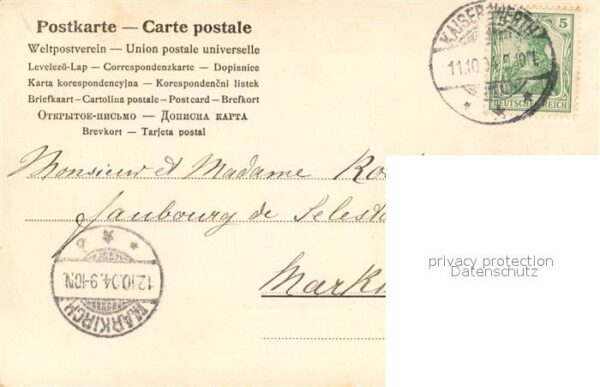 Postkarte — Carte postale
Weltpostverein — Union postale universelle
Levelező-Lap — Correspondenzkarte — Dopisnice
Karta korespondencyjna — Korespondenční listek
Briefkaart — Cartolina postale — Postcard — Brefkort
Открытое-письмо — Дописна карта
Brevkort — Tarjeta postal
KAISERSWERTH
11.10.04
5
DEUTSCHES REICH
Monsieur et Madame
Faubourg de Selesta
Marki
privacy protection
Datenschutz
b
12.10.04.9-10N.
MARKIRCH